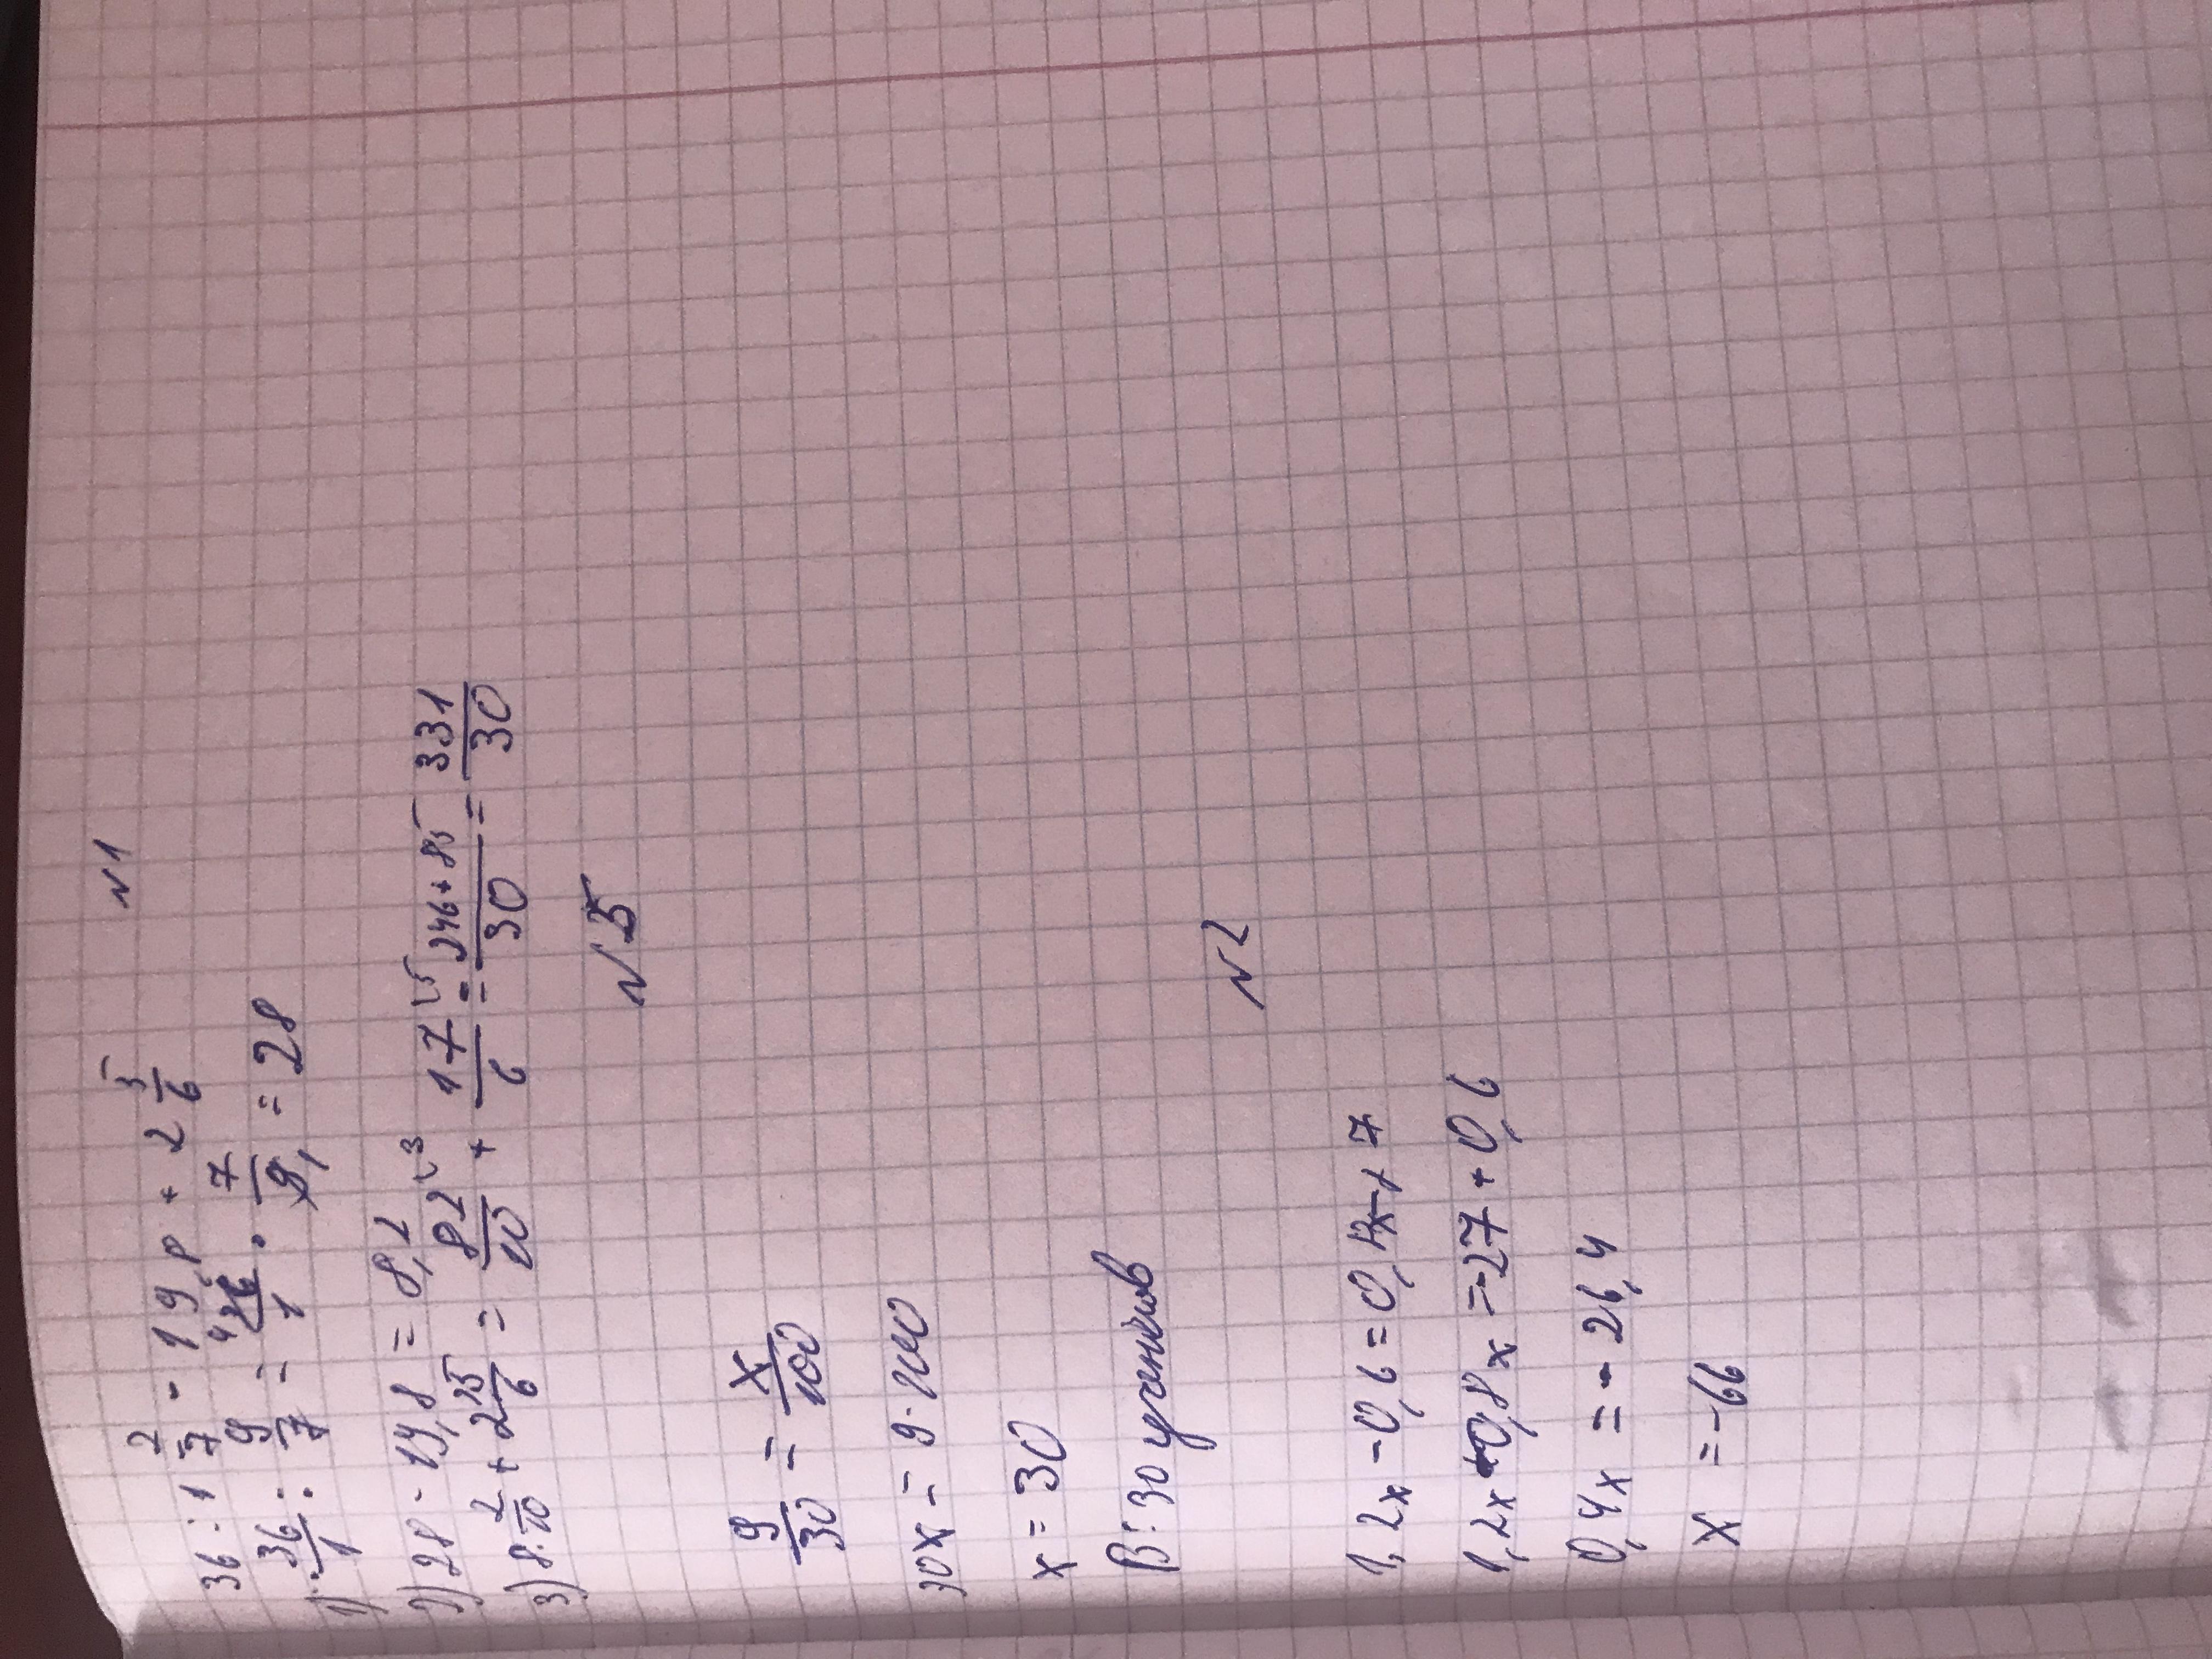 N1
36 : 1 2/7 - 19,8 + 2 5/6
1) 36/1 : 9/7 = 36/1 · 7/9 = 28
2) 28 - 19,8 = 8,2
3) 8 2/10 + 2 5/6 = 82/10 + 17/6 = 246+85/30 = 331/30
N5
9/30 = x/100
30x = 9·100
x = 30
В: 30 учеників
N2
1,2x - 0,6 = 0,8x - 27
1,2x - 0,8x = -27 + 0,6
0,4x = - 26,4
x = -66